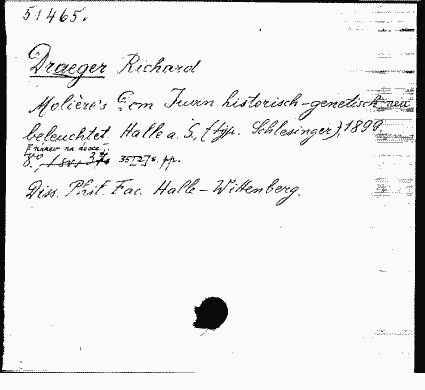 51465.
Draeger Richard
Molière's Dom Juan historisch-genetisch neu
beleuchtet. Halle a. S. (typ. Schlesinger), 1899
8°, 35[2]s. pp.
Diss. Phil. Fac. Halle-Wittenberg.